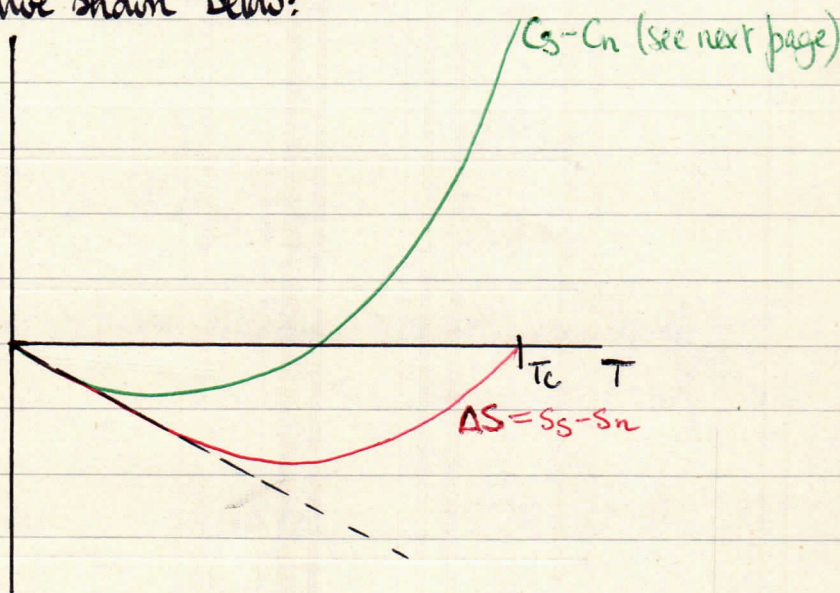 shown below:
Cs-Cn (see next page)
Tc T
ΔS = Ss-Sn